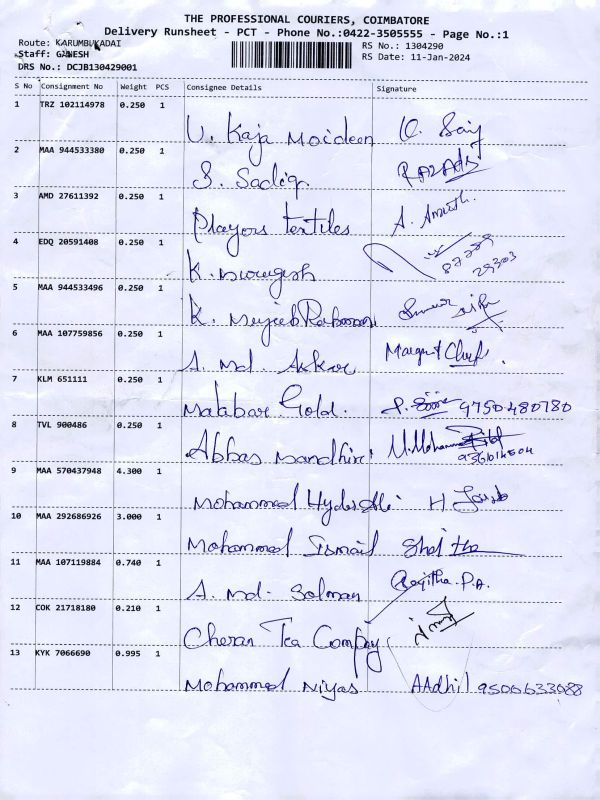 THE PROFESSIONAL COURIERS, COIMBATORE
Delivery Runsheet - PCT - Phone No.:0422-3505555 - Page No.:1
Route: KARUMBUKADAI RS No.: 1304290
Staff: GANESH RS Date: 11-Jan-2024
DRS No.: DCJB130429001
S No Consignment No Weight PCS Consignee Details Signature
1 TRZ 102114978 0.250 1
U. Kaja Moideen
2 MAA 944533380 0.250 1
S. Sadiq
3 AMD 27611392 0.250 1
Players textiles A.
4 EDQ 20591408 0.250 1
K. Murugesh
5 MAA 944533496 0.250 1
K. Mujeeb Rahman
6 MAA 107759856 0.250 1
A. Md. Askar Margret
7 KLM 651111 0.250 1
Malabar Gold. 9750480780
8 TVL 900486 0.250 1
Abbas Mandhiri
9 MAA 570437948 4.300 1
Mohammed Hyder Ali H
10 MAA 292686926 3.000 1
Mohammed Ismail
11 MAA 107119884 0.740 1
A. Md. Salman P.A.
12 COK 21718180 0.210 1
Cheran Tea Company
13 KYK 7066690 0.995 1
Mohammed Niyas AAdhil 9500633088